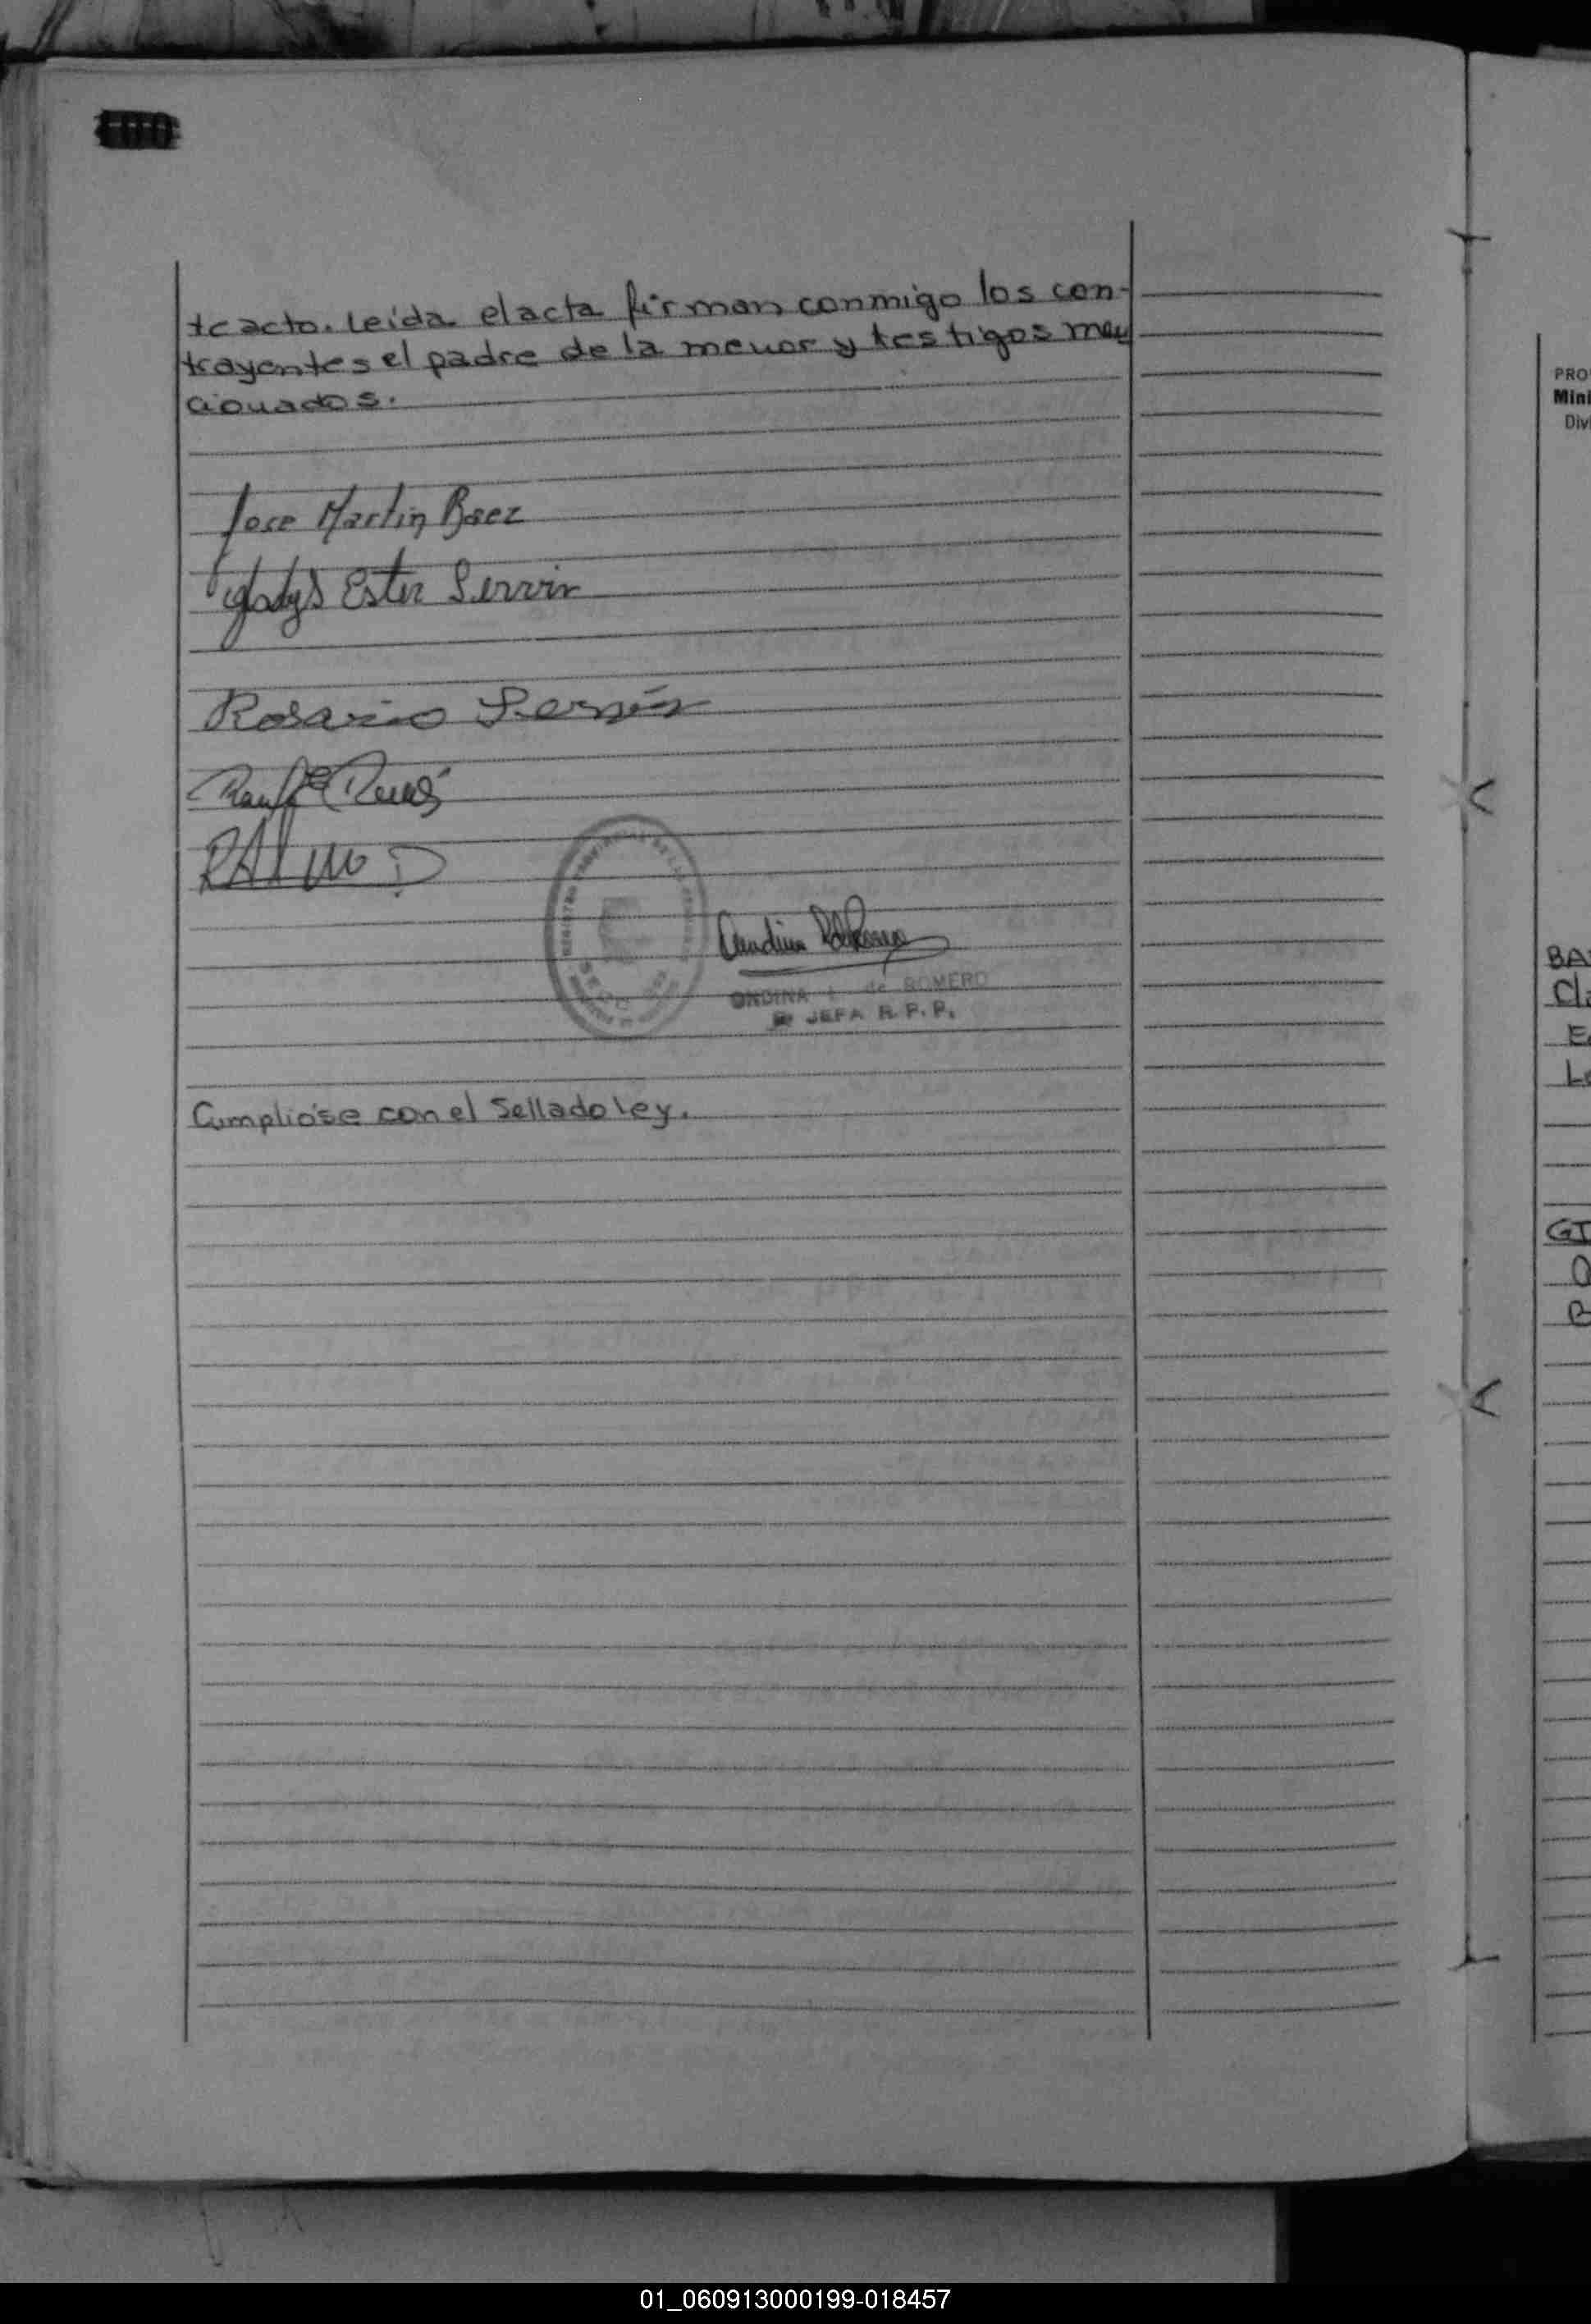 100
te acto. Leida el acta firman conmigo los con-
trayentes el padre de la menor y testigos men
cionados.
Jose Martin Baez
Gladys Ester Servin
Rosario Servín
ONDINA de ROMERO
JEFA R. P. P.
Cumplióse con el Sellado ley.
PRO
Mini
Div
BA
Cl
E
L
GI
O
B
01_060913000199-018457